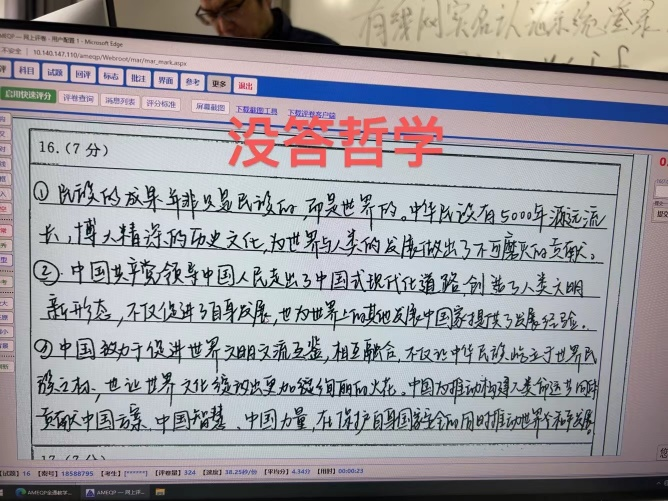 有线网实名认证系统登录
AMEQP — 网上评卷 - 用户配置 1 - Microsoft Edge
不安全 10.140.147.110/ameqp/Webroot/mar/mar_mark.aspx
评 科目 试题 回评 标志 批注 界面 参考 更多 退出
启用快速评分 评卷查询 消息列表 评分标准 屏幕截图 下载截图工具 下载评卷客户端
没答哲学
16.(7 分)
①民族的成果并非只是民族的,而是世界的。中华民族有5000年源远流
长,博大精深的历史文化,为世界与人类的发展做出了不可磨灭的贡献。
②中国共产党领导中国人民走出了中国式现代化道路,创造了人类文明
新形态,不仅促进了自身发展,也为世界上的其他发展中国家提供了发展经验。
③中国致力于促进世界文明交流互鉴,相互融合,不仅让中华民族屹立于世界民
族之林,也让世界文化绽放出更加绚丽的火花。中国为推动构建人类命运共同体
贡献中国方案、中国智慧、中国力量,在保护自身国家安全的同时推动世界和平发展。
【试题】16 【卷号】18588795 【考生】[******] 【评卷量】324 【速度】38.25秒/份 【平均分】4.34分 【用时】00:00:23
AMEQP — 网上评...